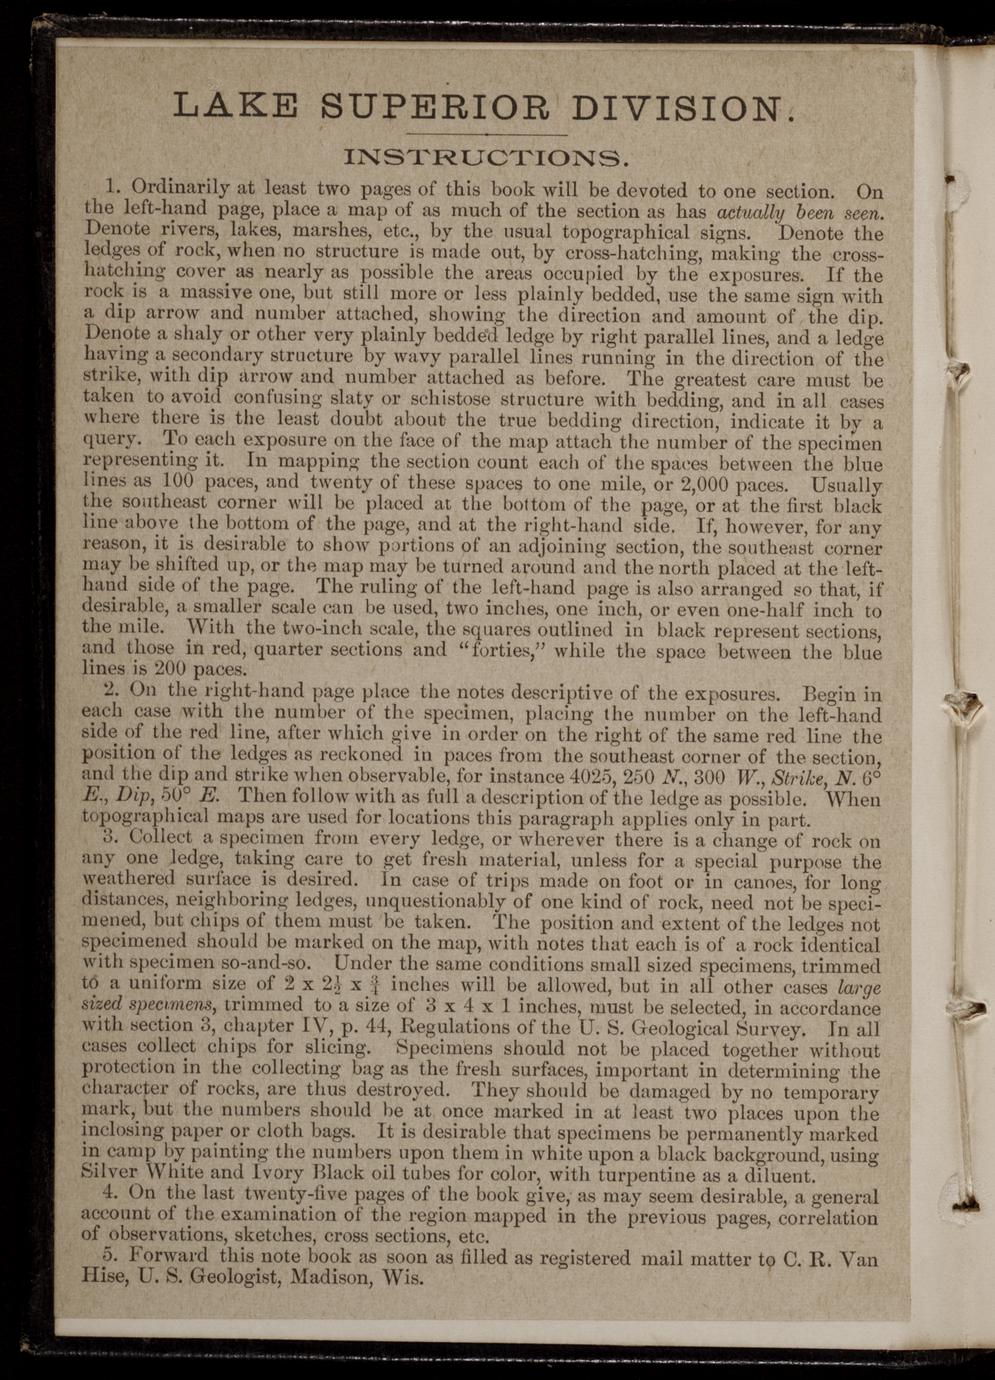 LAKE SUPERIOR DIVISION.
INSTRUCTIONS.
1. Ordinarily at least two pages of this book will be devoted to one section. On
the left-hand page, place a map of as much of the section as has actually been seen.
Denote rivers, lakes, marshes, etc., by the usual topographical signs. Denote the
ledges of rock, when no structure is made out, by cross-hatching, making the cross-
hatching cover as nearly as possible the areas occupied by the exposures. If the
rock is a massive one, but still more or less plainly bedded, use the same sign with
a dip arrow and number attached, showing the direction and amount of the dip.
Denote a shaly or other very plainly bedded ledge by right parallel lines, and a ledge
having a secondary structure by wavy parallel lines running in the direction of the
strike, with dip arrow and number attached as before. The greatest care must be
taken to avoid confusing slaty or schistose structure with bedding, and in all cases
where there is the least doubt about the true bedding direction, indicate it by a
query. To each exposure on the face of the map attach the number of the specimen
representing it. In mapping the section count each of the spaces between the blue
lines as 100 paces, and twenty of these spaces to one mile, or 2,000 paces. Usually
the southeast corner will be placed at the bottom of the page, or at the first black
line above the bottom of the page, and at the right-hand side. If, however, for any
reason, it is desirable to show portions of an adjoining section, the southeast corner
may be shifted up, or the map may be turned around and the north placed at the left-
hand side of the page. The ruling of the left-hand page is also arranged so that, if
desirable, a smaller scale can be used, two inches, one inch, or even one-half inch to
the mile. With the two-inch scale, the squares outlined in black represent sections,
and those in red, quarter sections and “forties,” while the space between the blue
lines is 200 paces.
2. On the right-hand page place the notes descriptive of the exposures. Begin in
each case with the number of the specimen, placing the number on the left-hand
side of the red line, after which give in order on the right of the same red line the
position of the ledges as reckoned in paces from the southeast corner of the section,
and the dip and strike when observable, for instance 4025, 250 N., 300 W., Strike, N. 6°
E., Dip, 50° E. Then follow with as full a description of the ledge as possible. When
topographical maps are used for locations this paragraph applies only in part.
3. Collect a specimen from every ledge, or wherever there is a change of rock on
any one ledge, taking care to get fresh material, unless for a special purpose the
weathered surface is desired. In case of trips made on foot or in canoes, for long
distances, neighboring ledges, unquestionably of one kind of rock, need not be speci-
mened, but chips of them must be taken. The position and extent of the ledges not
specimened should be marked on the map, with notes that each is of a rock identical
with specimen so-and-so. Under the same conditions small sized specimens, trimmed
to a uniform size of 2 x 2½ x ¾ inches will be allowed, but in all other cases large
sized specimens, trimmed to a size of 3 x 4 x 1 inches, must be selected, in accordance
with section 3, chapter IV, p. 44, Regulations of the U. S. Geological Survey. In all
cases collect chips for slicing. Specimens should not be placed together without
protection in the collecting bag as the fresh surfaces, important in determining the
character of rocks, are thus destroyed. They should be damaged by no temporary
mark, but the numbers should be at once marked in at least two places upon the
inclosing paper or cloth bags. It is desirable that specimens be permanently marked
in camp by painting the numbers upon them in white upon a black background, using
Silver White and Ivory Black oil tubes for color, with turpentine as a diluent.
4. On the last twenty-five pages of the book give, as may seem desirable, a general
account of the examination of the region mapped in the previous pages, correlation
of observations, sketches, cross sections, etc.
5. Forward this note book as soon as filled as registered mail matter to C. R. Van
Hise, U. S. Geologist, Madison, Wis.